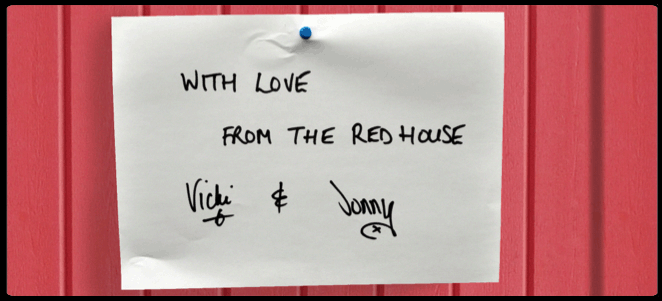 WITH LOVE
FROM THE RED HOUSE
Vicki & Jonny